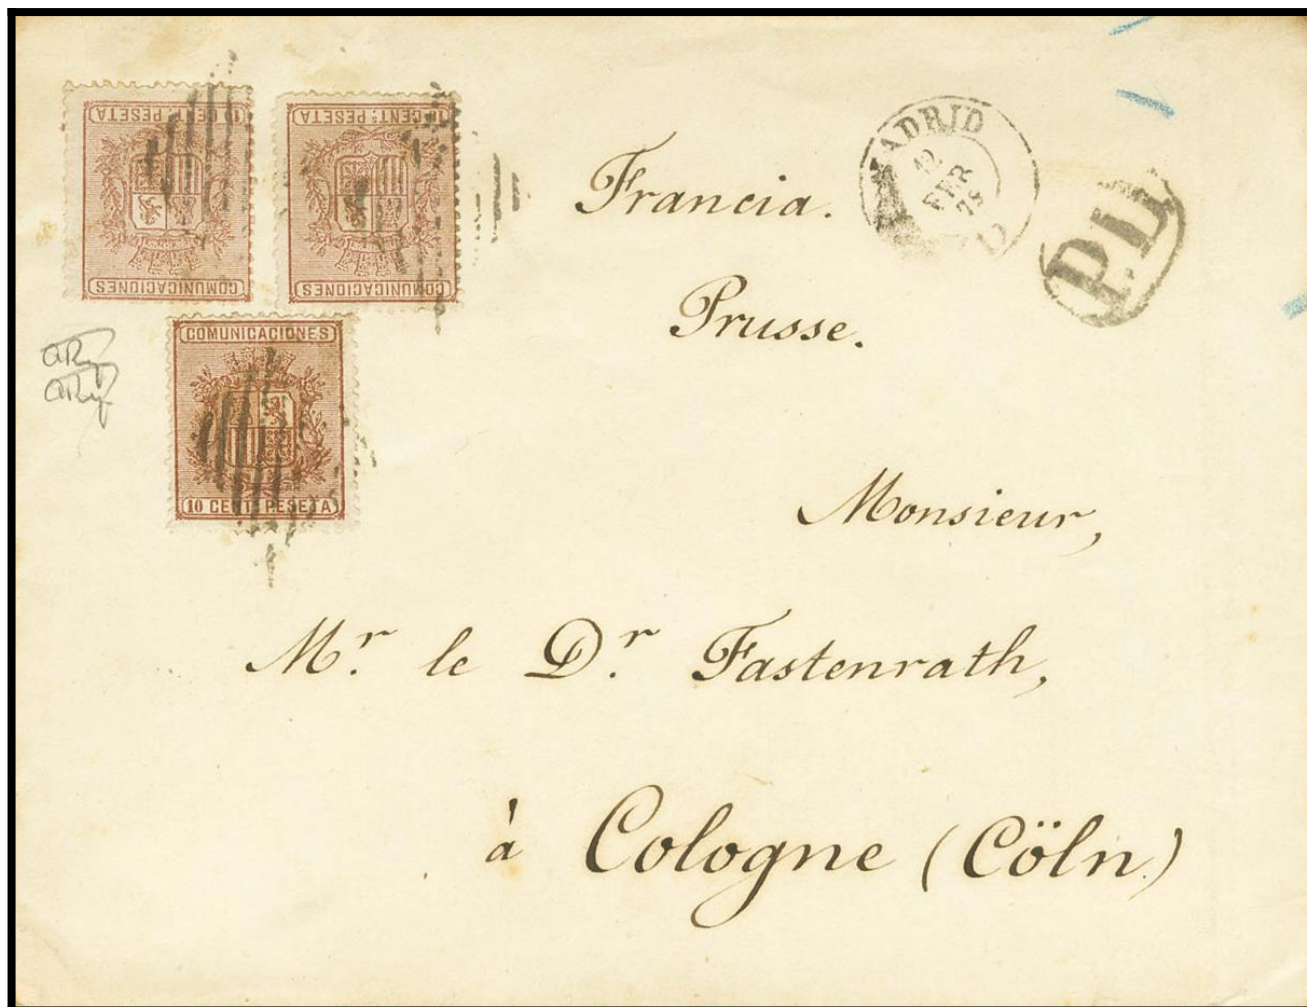 10 CENTS PESETA
COMUNICACIONES
10 CENTS PESETA
COMUNICACIONES
COMUNICACIONES
10 CENTS PESETA
MADRID
12
FEB
P.D.
Francia.
Prusse.
Monsieur,
Mr. le Dr. Fastenrath,
à Cologne (Cöln)